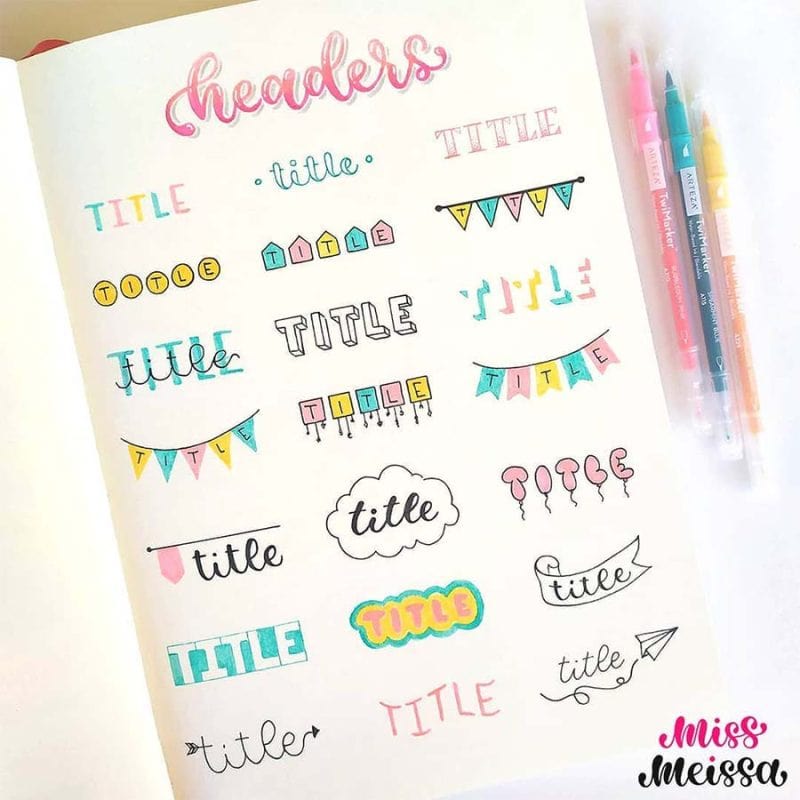 headers
TITLE
title
TITLE
TITLE
TITLE
TITLE
TITLE
title
TITLE
TITLE
TITLE
TITLE
TITLE
title
title
TITLE
TITLE
TITLE
title
title
TITLE
title
ARTEZA
TwiMarker
ARTEZA
TwiMarker
SPEARMINT BLUE
ARTEZA
TwiMarker
Miss
Meissa